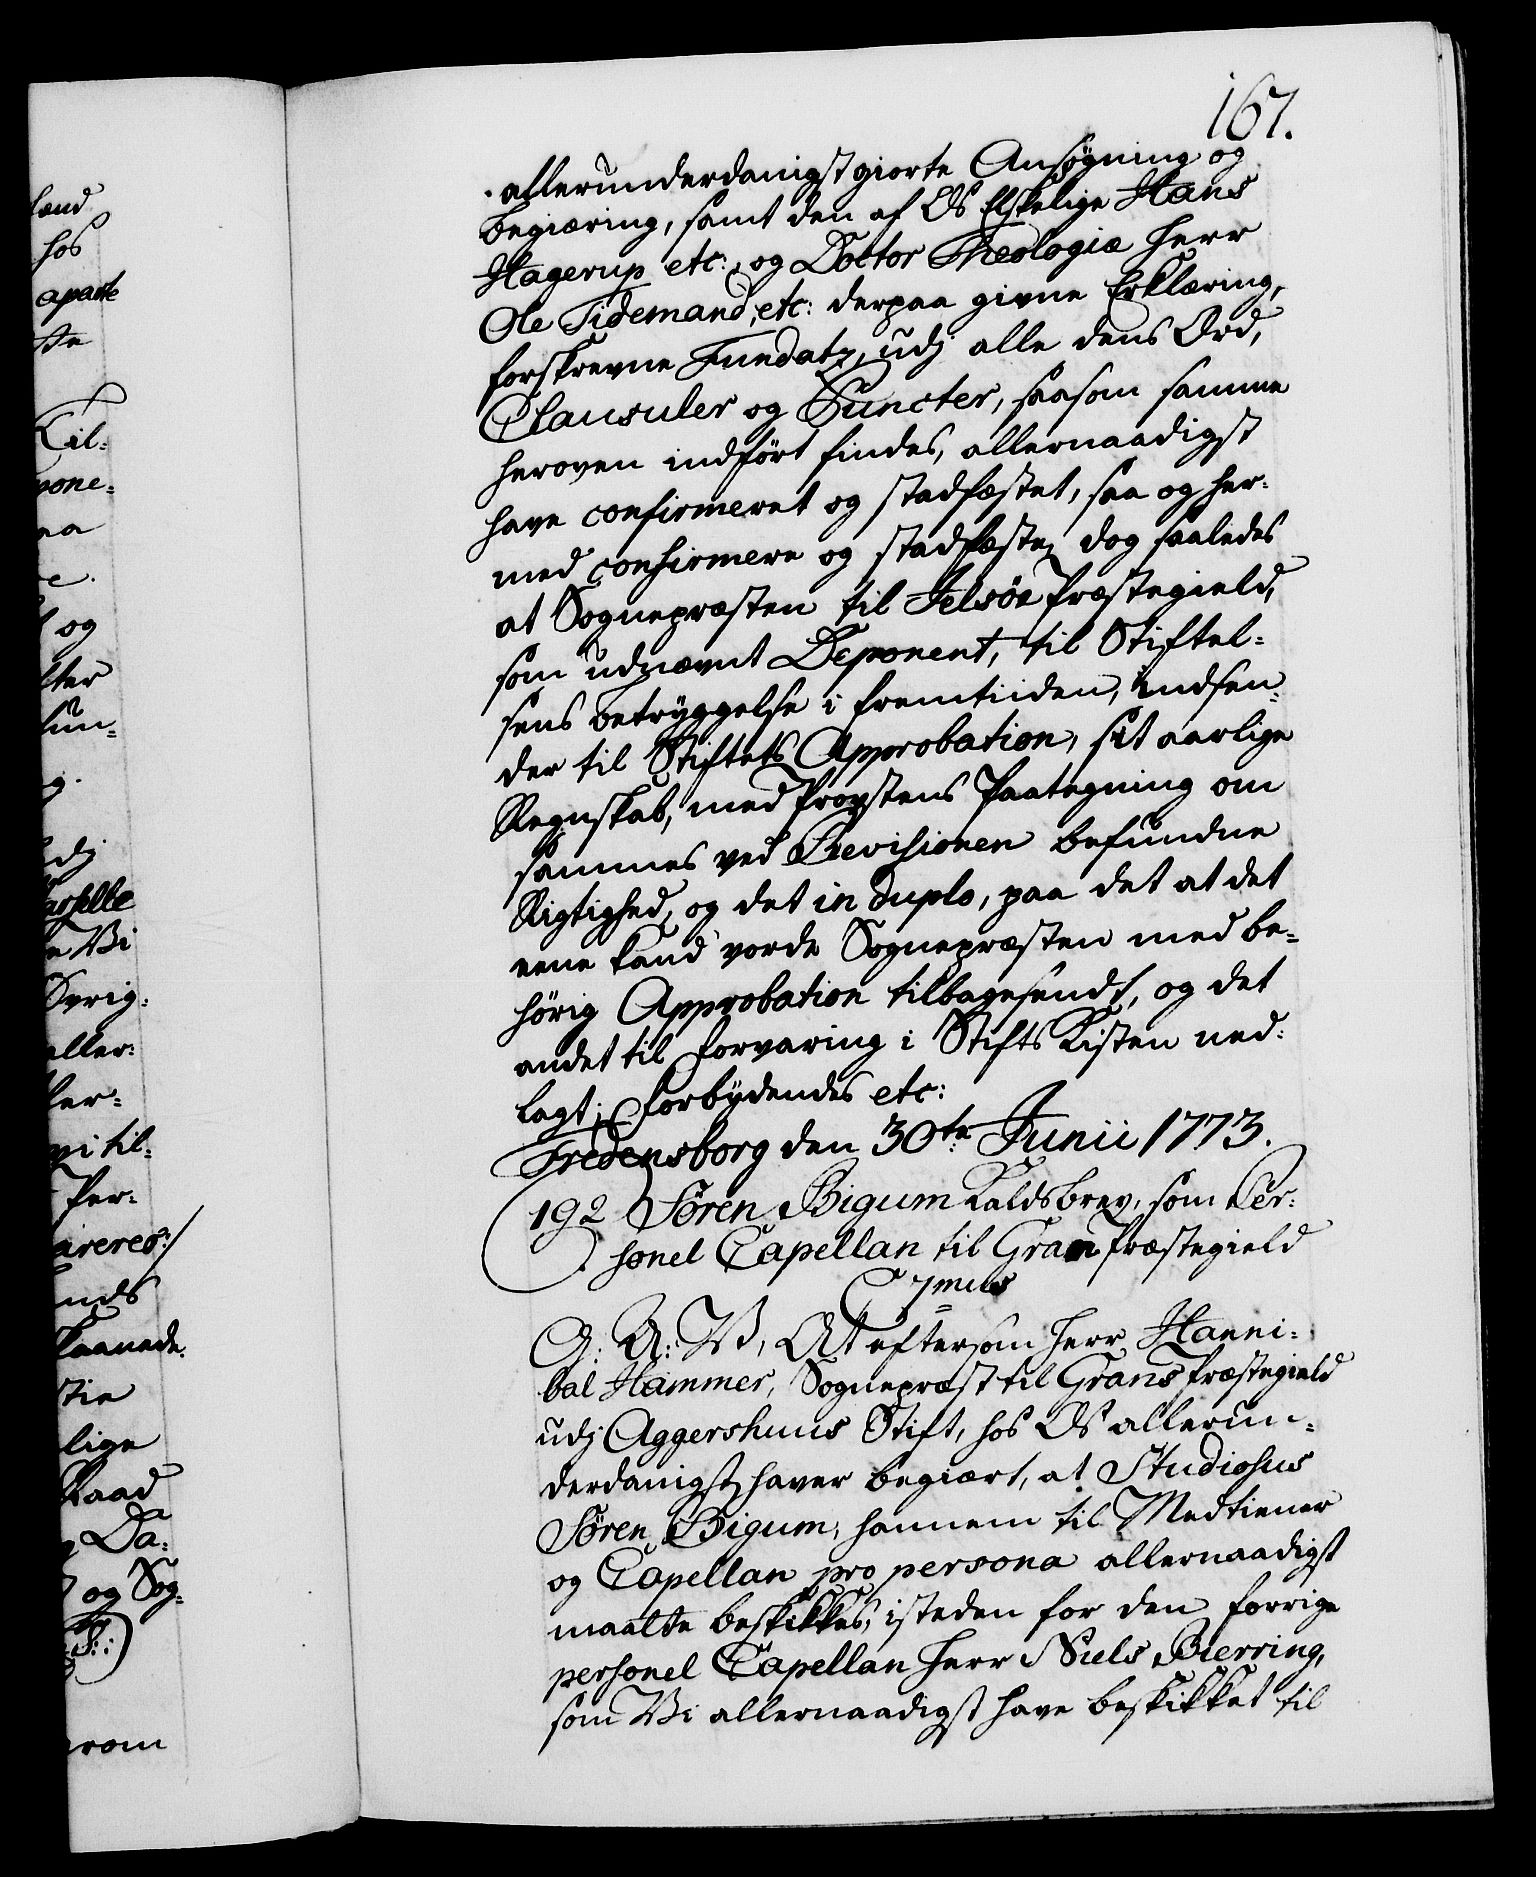 167.
allerunderdanigst giorte Ansøgning og
begiæring, samt den af Os Elskelige Hans
Hagerup etc: og Doctor Theologiæ Herr
Ole Tidemand, etc: derpaa givne Erklæring,
forskrevne Fundatz, udj alle dens Ord,
Clausuler og Puncter, saasom samme
heroven indført findes, allernaadigst
have confirmeret og stadfæstet, saa og her-
med confirmere og stadfæste, dog saaledes
at Sognepræsten til Jelsøe Præstegield,
som udnævnt Deponent, til Stiftel-
sens betryggelse i fremtiiden, indsen-
der til Stiftets Approbation, sit aarlige
Regnskab, med Provstens Paategning om
sammes ved Revisionen befundne
Rigtighed, og det in duplo, paa det at det
eene kand vorde Sognepræsten med be-
hörig Approbation tilbagesendt, og det
andet til forvaring i Stifts Kisten ned-
lagt; Forbydendes etc:
Fredensborg den 30te Junii 1773.
192 Sören Bigum Kaldsbrev, som Per-
sonel Capellan til Gran Præstegield
C 7mus
G: A: V, At eftersom Herr Hanni-
bal Hammer, Sognepræst til Grans Præstegield
udj Aggershuus Stift, hos Os allerun-
derdanigst haver begiært, at Studiosus
Sören Bigum, hannem til Medtiener
og Capellan pro persona allernaadigst
maatte beskikkes, isteden for den forrige
personel Capellan Herr Niels Bierring,
som Vi allernaadigst have beskikket til
lænd
hos
aparte
og
Vi
aller-
til-
Per-
lige
Raad
Da-
og Sog-